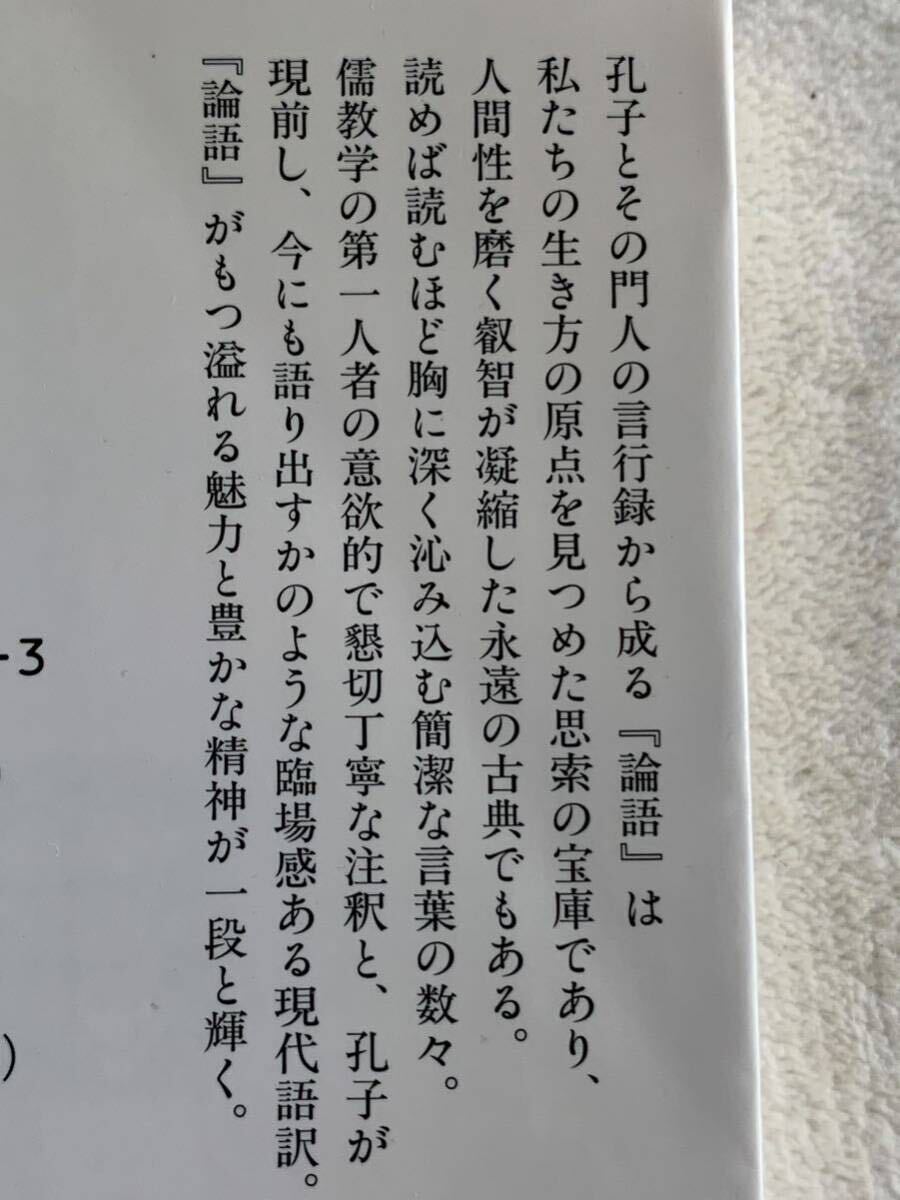 孔子とその門人の言行録から成る『論語』は
私たちの生き方の原点を見つめた思索の宝庫であり、
人間性を磨く叡智が凝縮した永遠の古典でもある。
読めば読むほど胸に深く沁み込む簡潔な言葉の数々。
儒教学の第一人者の意欲的で懇切丁寧な注釈と、孔子が
現前し、今にも語り出すかのような臨場感ある現代語訳。
『論語』がもつ溢れる魅力と豊かな精神が一段と輝く。
-3
)